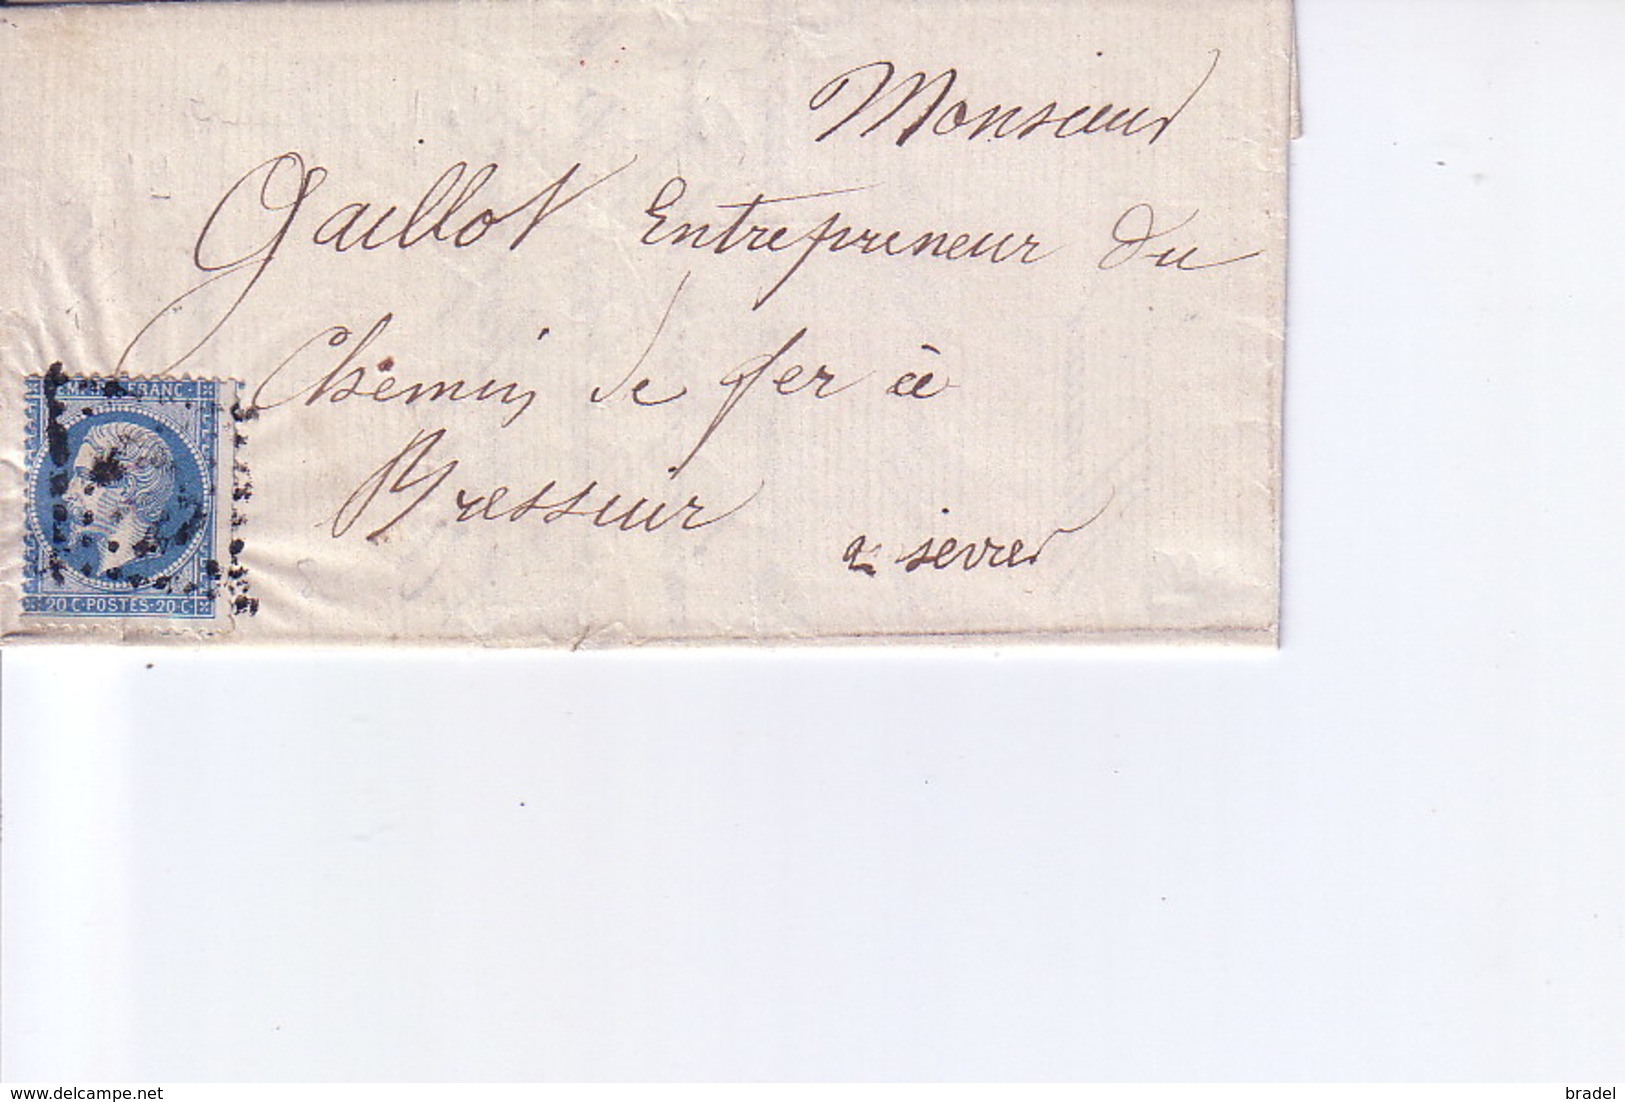 Monsieur
Gaillot Entrepreneur du
Chemin de fer à
Bressuir
2x sevres
EMPIRE FRANC
20 C · POSTES · 20 C
www.delcampe.net
bradel